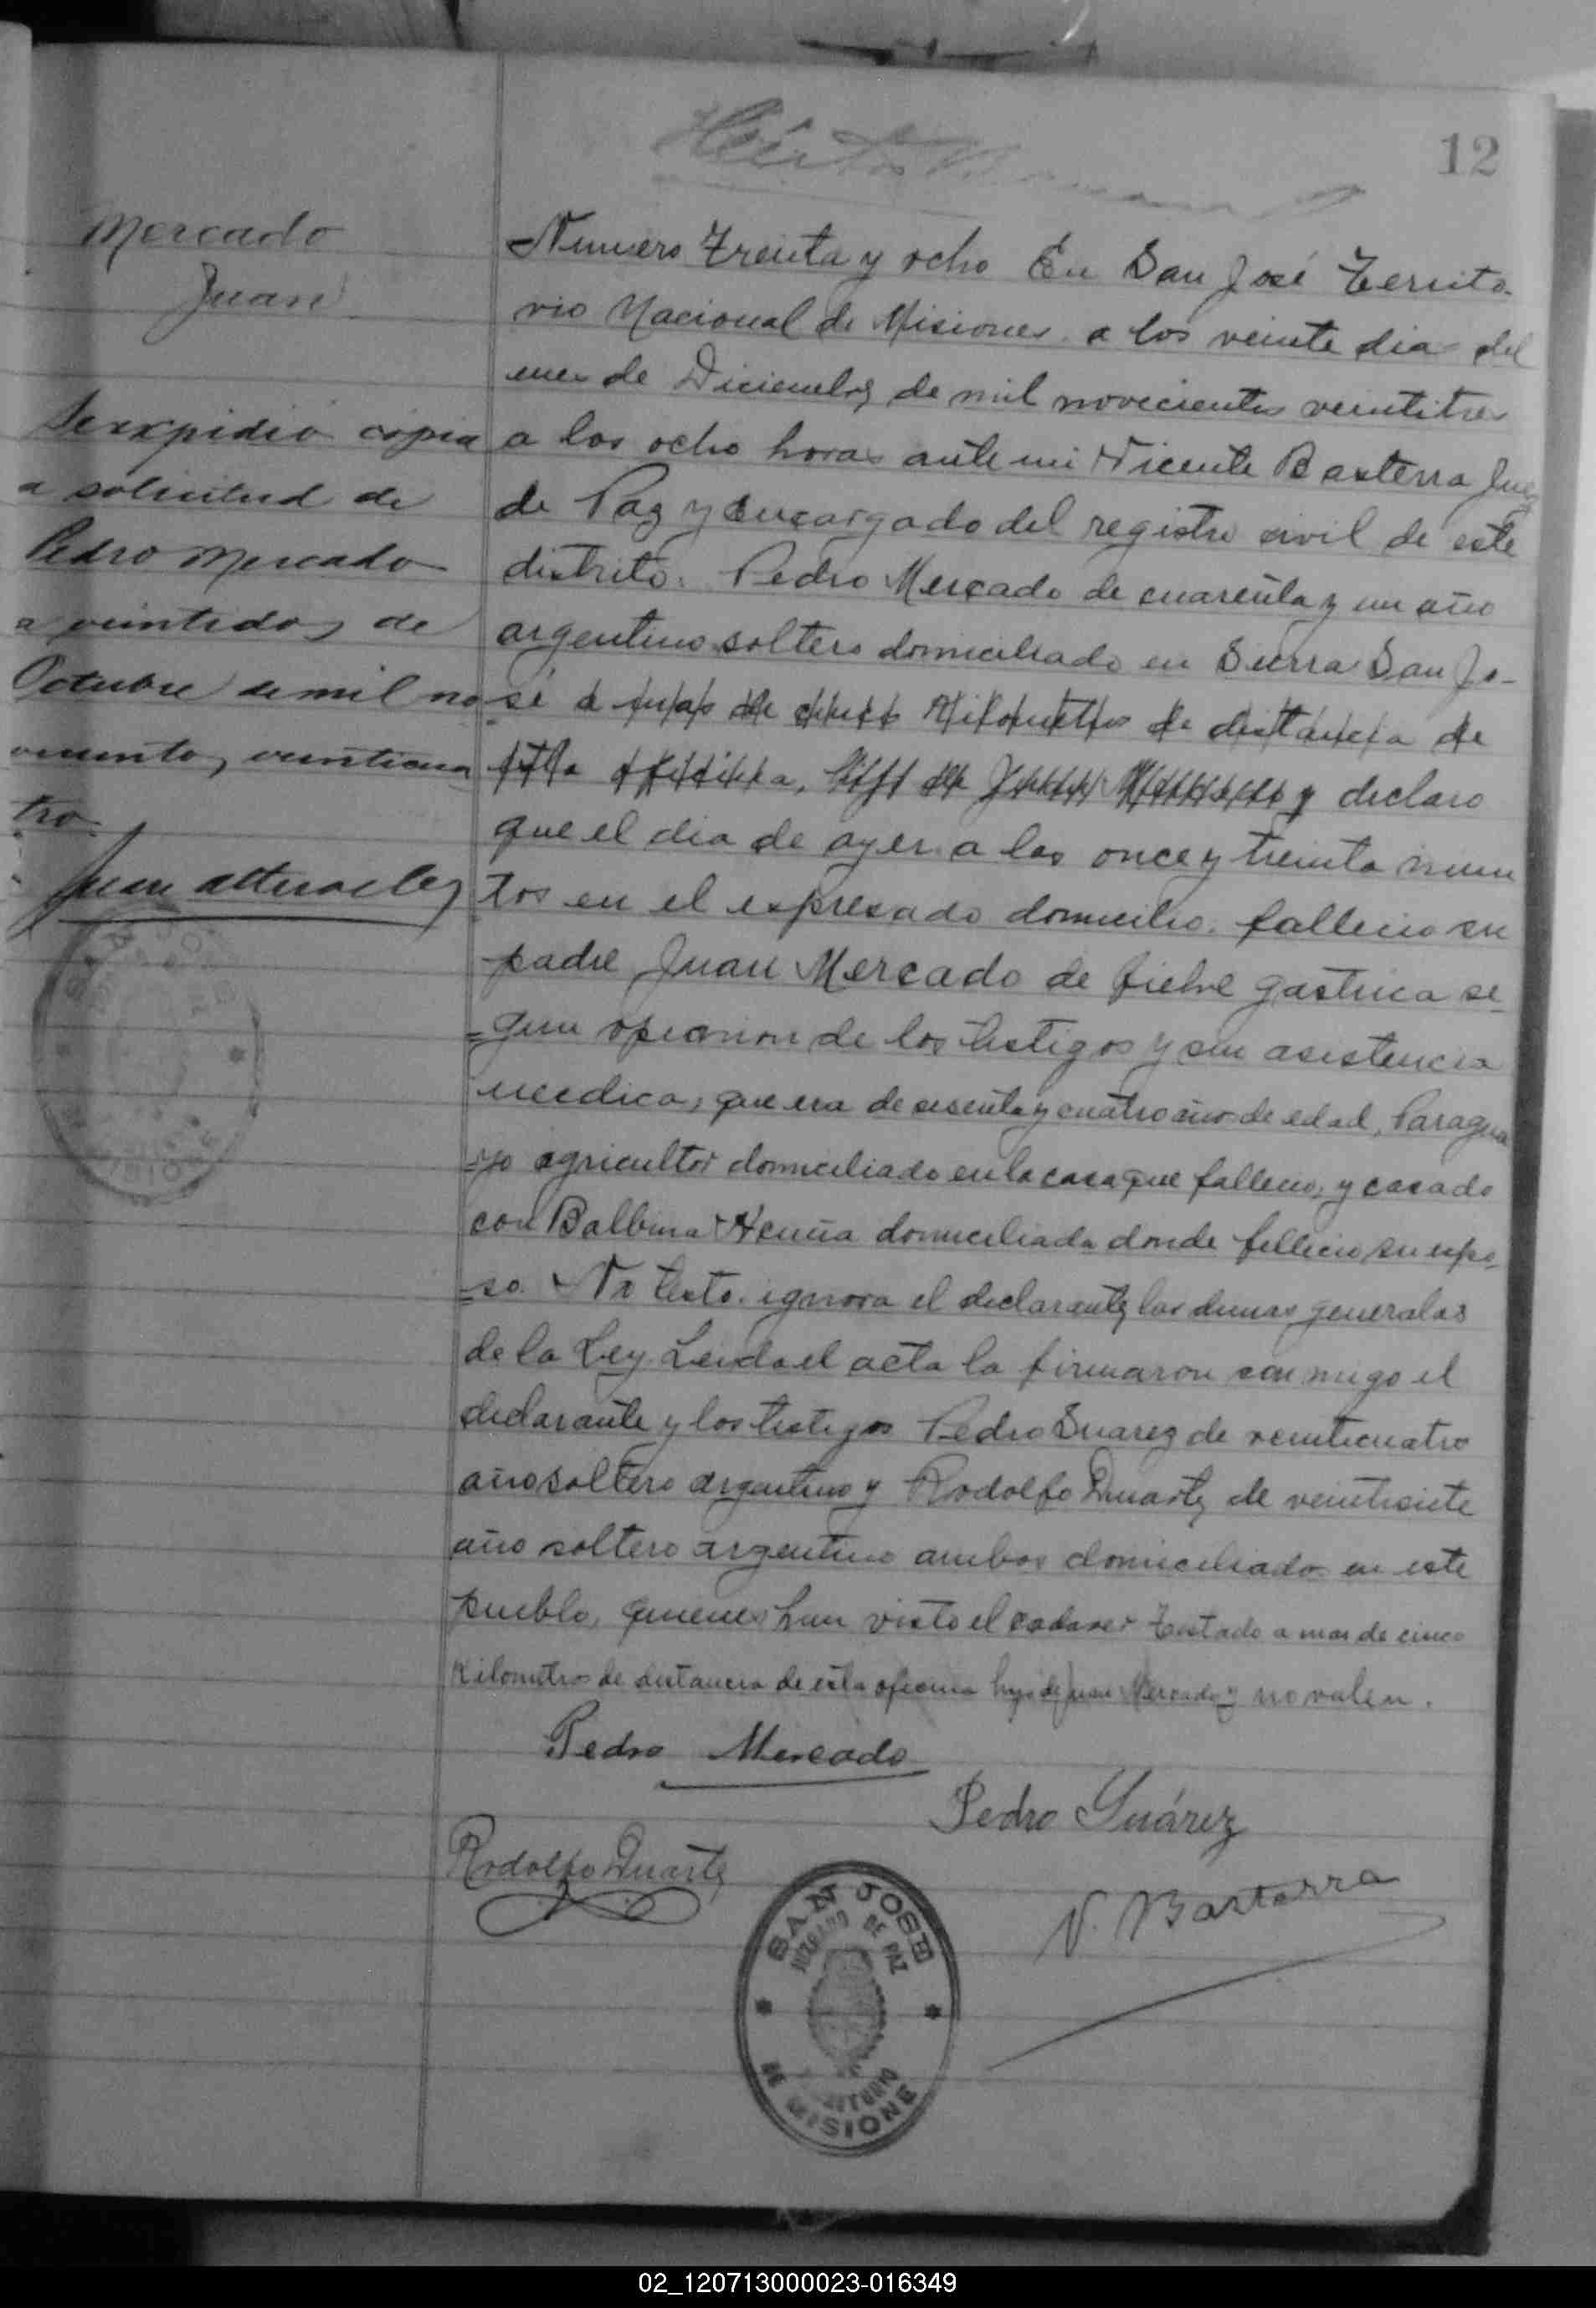 12
Mercado
Juan
Se expidió copia
a solicitud de
Pedro Mercado
a veintidos de
Octubre de mil no
veciento, veinticua
tro.
Numero Treinta y ocho En San José Territo-
rio Nacional de Misiones a los veinte dia del
mes de Diciembre de mil novecientos veintitres
a las ocho horas ante mi Vicente Basterra Juez
de Paz y Encargado del registro civil de este
distrito. Pedro Mercado de cuarenta y un año
argentino soltero domiciliado en Sierra San Jo-
sé a mas de cinco Kilometros de distancia de
esta oficina, hijo de Juan Mercado y declaro
que el dia de ayer a las once y treinta minu
tos en el expresado domicilio. fallecio su
padre Juan Mercado de fiebre gastrica se-
=gun opinion de los testigos y sin asistencia
medica, que era de sesenta y cuatro año de edad, Paragua
=yo agricultor domiciliado en la casa que fallecio, y casado
con Balbina Acuña domiciliada donde fellecio su espo-
=so. No testo. ignora el declarante las demas generales
de la Ley. Leida el acta la firmaron conmigo el
declarante y los testigos Pedro Suarez de veinticuatro
año soltero argentino y Rodolfo Duarte de veintisiete
año soltero argentino ambos domiciliado en este
pueblo, quienes han visto el cadaver Testado a mas de cinco
Kilometros de distancia de esta oficina hijo de Juan Mercado y no valen.
Pedro Mercado
Pedro Suárez
Rodolfo Duarte
V. Basterra
SAN JOSE
JUZGADO DE PAZ
DE MISIONES
02_120713000023-016349